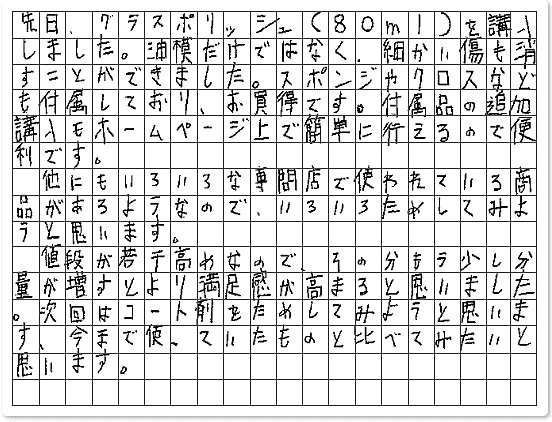 先日、グラスポリッシュ(80ml)を講入
しました。油模だけではなく、細かい傷も消
すことができました。スポンジやクロスなど
も付属しており、お買得です。付属品の追加
講入もホームページ上で簡単に行えるので便
利です。
他にもいろいろな専問店で使われている商
品があるようなので、いろいろためしてみよ
うと思います。
値段が若干高めなので、その分もう少し分
量が増すとより満足感が高まると思いました
。次回はコート剤をためしてみようと思いま
す、今まで使っていたものと比べてみたいと
思います。